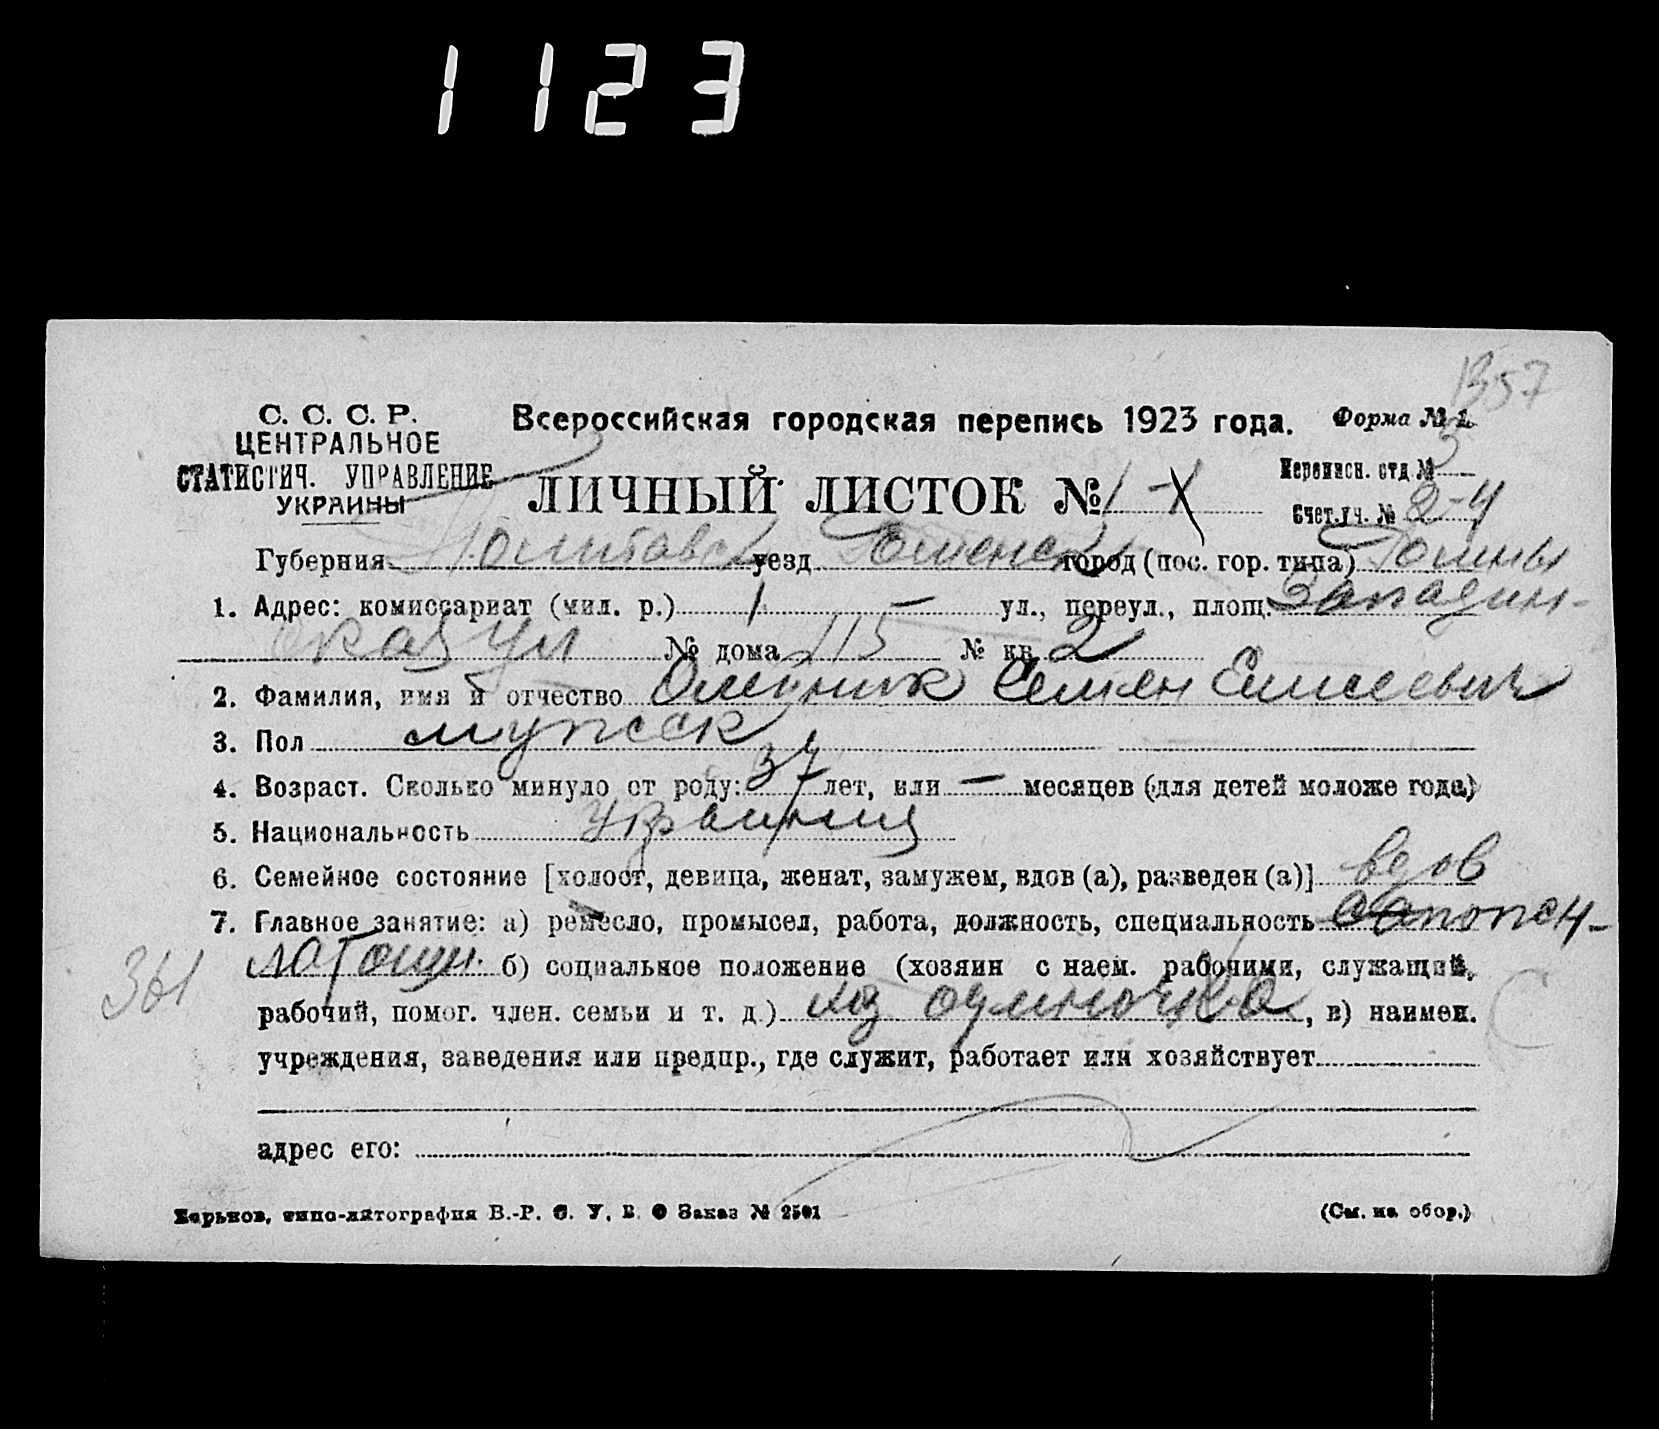 1123
1357
С. С. С. Р.
ЦЕНТРАЛЬНОЕ
СТАТИСТИЧ. УПРАВЛЕНИЕ
УКРАИНЫ
Всероссийская городская перепись 1923 года. Форма № 1.
ЛИЧНЫЙ ЛИСТОК № 1
Переписн. отд. № 3
Счет. уч. № 2-4
Губерния Полтавск уезд Роменск город (пос. гор. типа) Ромны
1. Адрес: комиссариат (мил. р.) 1 — ул., переул., площ.
№ дома 115 № кв. 2
2. Фамилия, имя и отчество Олейник Семен Елисеевич
3. Пол мужск
4. Возраст. Сколько минуло от роду: 37 лет, или — месяцев (для детей моложе года)
5. Национальность Украинец
6. Семейное состояние [холост, девица, женат, замужем, вдов (а), разведен (а)] вдов
7. Главное занятие: а) ремесло, промысел, работа, должность, специальность
361
б) социальное положение (хозяин с наем. рабочими, служащий,
рабочий, помог. член. семьи и т. д.) хоз одиночка, в) наимен.
учреждения, заведения или предпр., где служит, работает или хозяйствует
адрес его:
Харьков, типо-литография В.-Р. С. У. В. О Заказ № 2501
(См. на обор.)